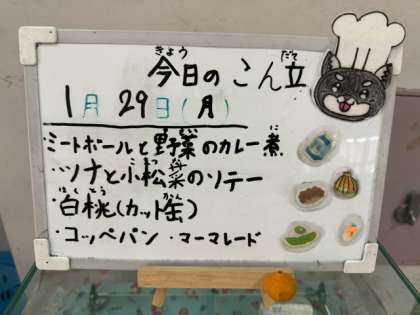 今日のこん立
1月29日(月)
・ミートボールと野菜のカレー煮
・ツナと小松菜のソテー
・白桃(カット缶)
・コッペパン ・マーマレード